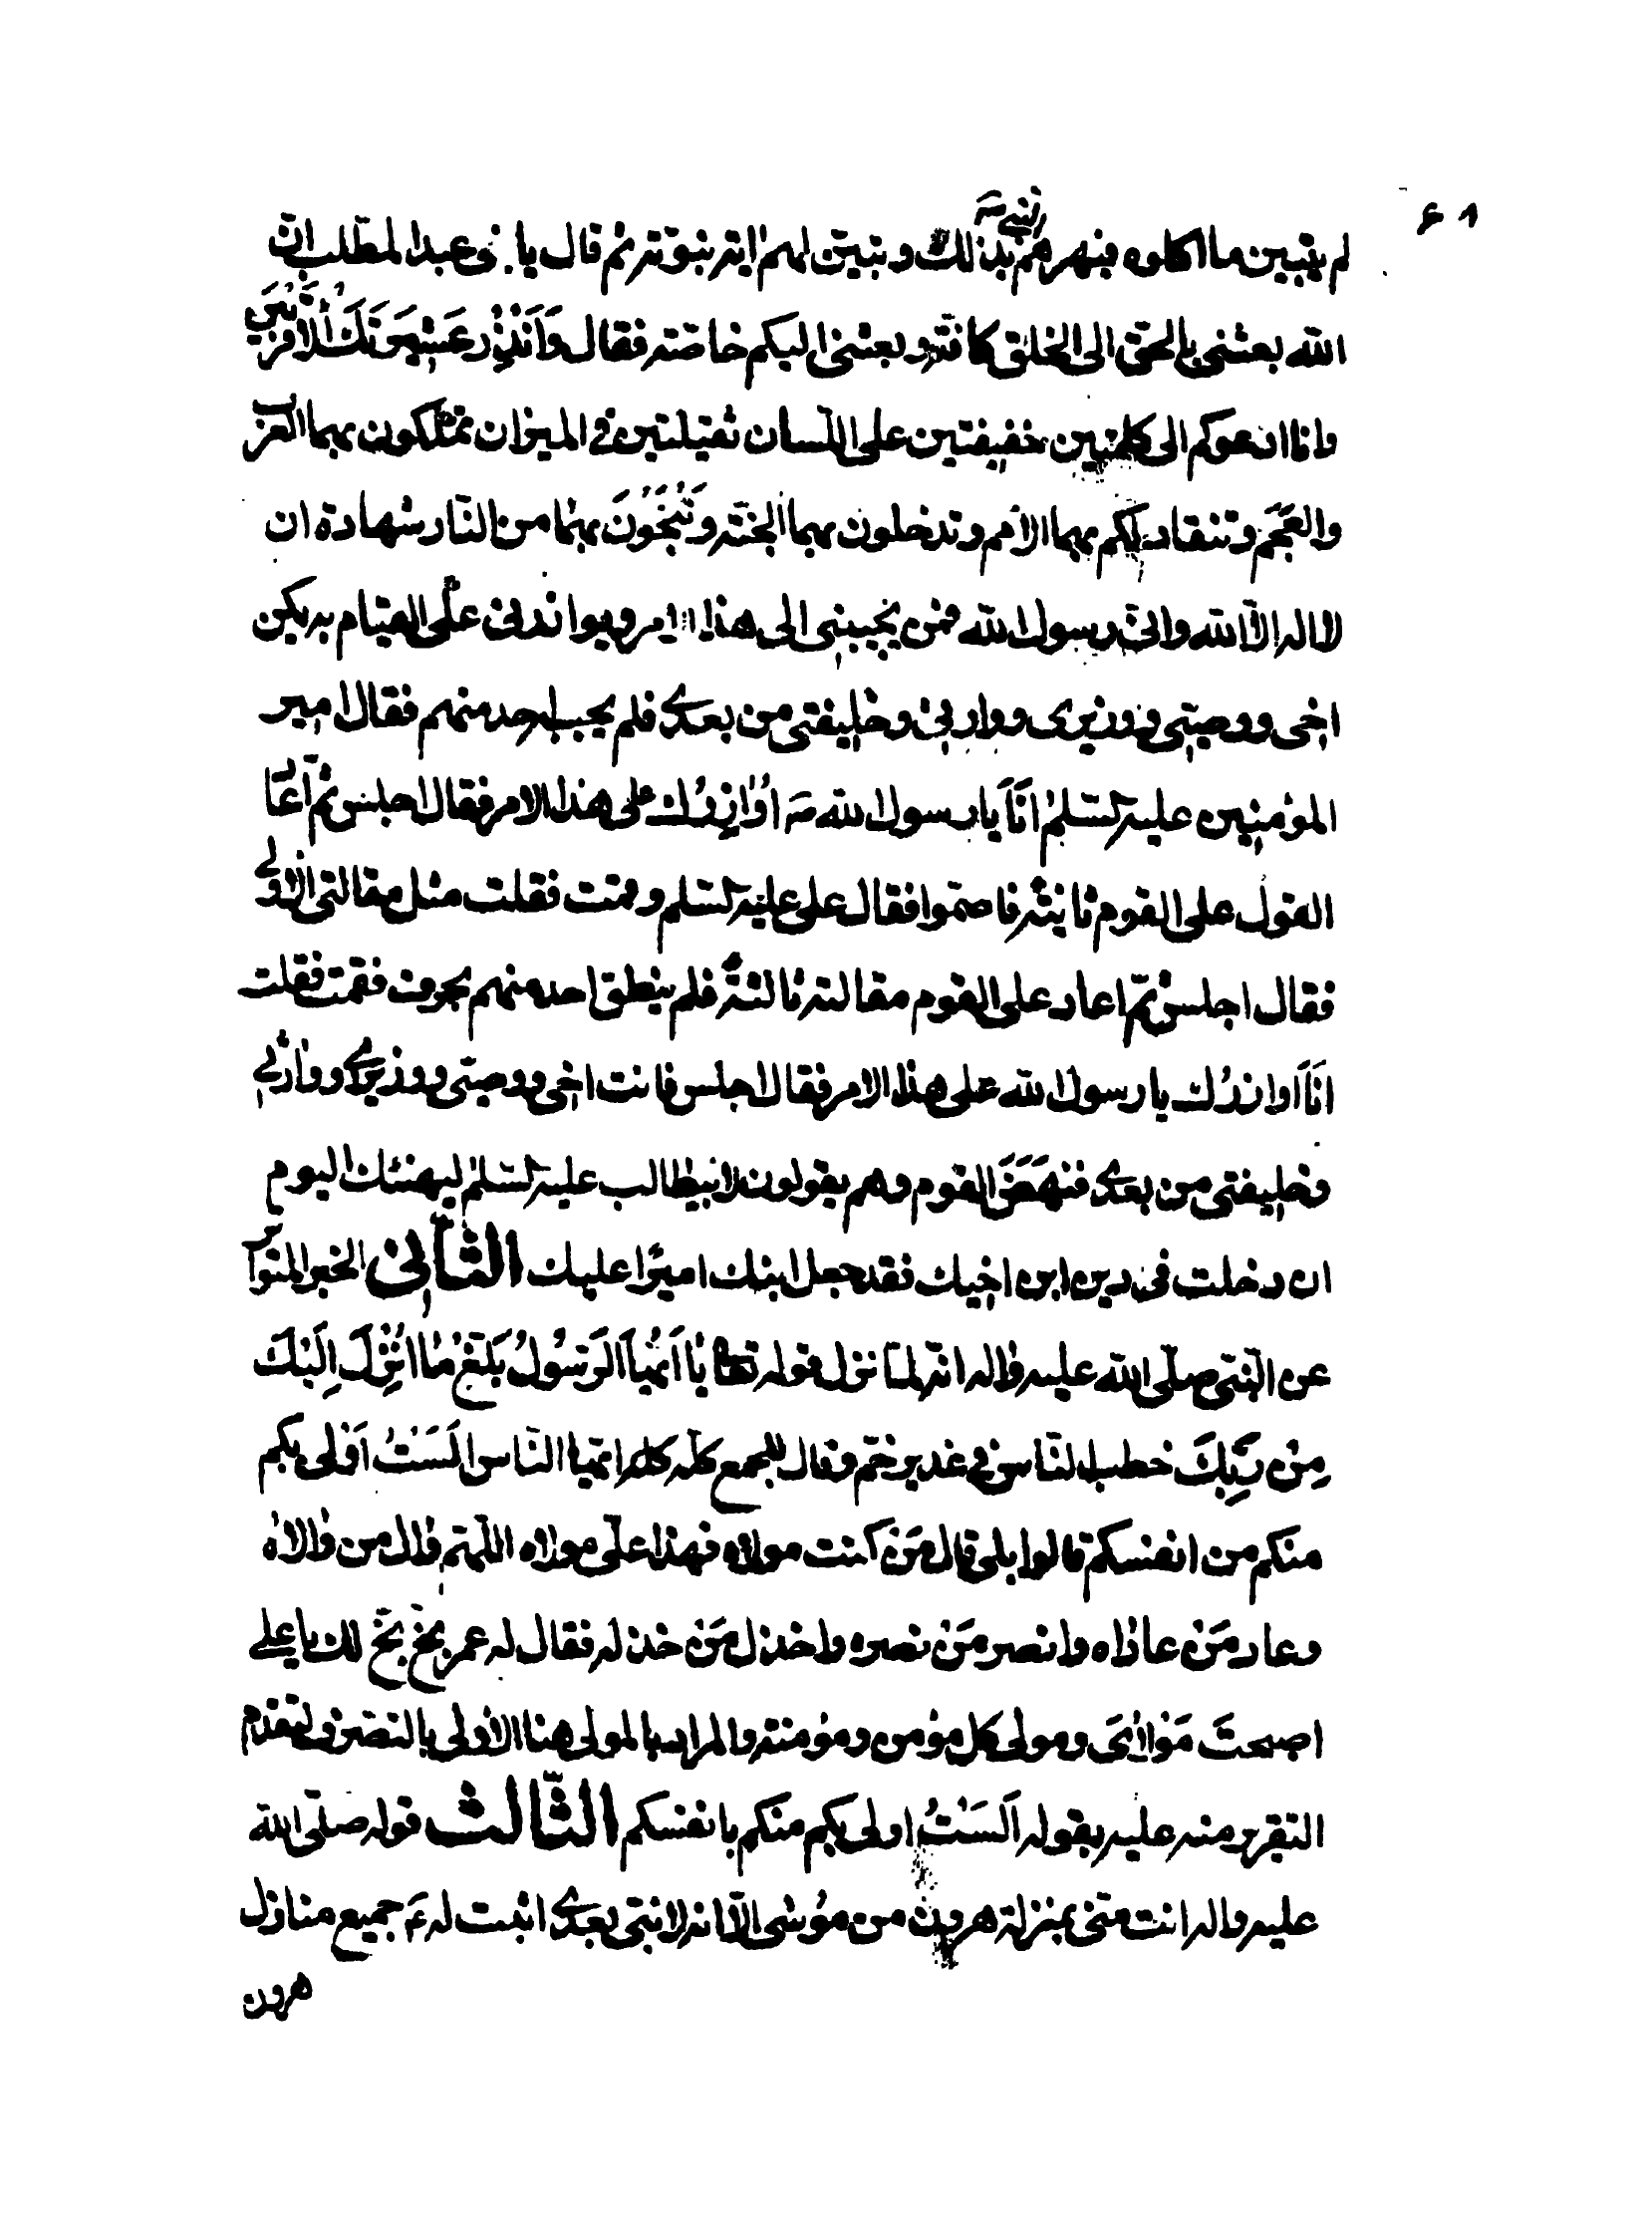 ۶۱
النبي صه
لم يتبين ما اكلوه فبهرهم بذلك وتبين لهم اية نبوته ثم قال يا بني عبد المطلب ان
الله بعثني بالحق الى الخلق كافة وبعثني اليكم خاصة فقال وَاَنْذِرْ عَشِيرَتَكَ الْاَقْرَبِينَ
وانا ادعوكم الى كلمتين خفيفتين على اللسان ثقيلتين في الميزان تملكون بهما العرب
والعَجَم وتنقاد لكم بهما الامم وتدخلون بهما الجنة وتَنْجَوْنَ بهما من النار شهادة ان
لا اله الا الله واني رسول الله فمن يجيبني الى هذا الامر ويوازرني على القيام به يكن
اخي ووصيي ووزيري ووارثي وخليفتي من بعدي فلم يجب احد منهم فقال امير
المؤمنين عليه السلم انَا يا رسول الله صه اُوازِرُك على هذا الامر فقال اجلس ثم اعاد
القول على القوم ثانية فاصمتوا فقال علي عليه السلم وقمت فقلت مثل مقالتي الاولى
فقال اجلس ثم اعاد على القوم مقالته ثالثة فلم ينطق احد منهم بحرف فقمت فقلت
انَا اوازرُك يا رسول الله على هذا الامر فقال اجلس فانت اخي ووصيي ووزيري ووارثي
وخليفتي من بعدي فنهَضَ القوم وهم يقولون لابيطالب عليه السلم ليهنئك اليوم
ان دخلت في دين ابن اخيك فقد جعل ابنك اميرًا عليك الثّاني الخبر المتواتر
عن النبي صلى الله عليه واله انه لما نزل قوله تعا يا اَيُّها الرَّسُولُ بَلِّغْ ما اُنْزِلَ اِلَيْكَ
مِنْ رَبِّكَ خطب الناس في غدير خم وقال للجمع كله ايها الناس اَلَسْتُ اَوْلى بكم
منكم من انفسكم قالوا بلى قال مَنْ كنت مولاه فهذا علي مولاه اللهم وال من والاه
وعاد مَنْ عاداه وانصر مَنْ نصره واخذل مَنْ خذله فقال له عمر بخ بخ لك يا علي
اصبحتَ مَوْلايَ ومولى كل مؤمن ومؤمنة والمراد بالمولى هنا الاولى بالتصرف لتقدم
التقرير منه عليه بقوله اَلَسْتُ اولى بكم منكم بانفسكم الثّالث قوله صلى الله
عليه واله انت مني بمنزلة هرون من مؤسى الا انه لا نبي بعدي اثبت له ع جميع منازل
هرون